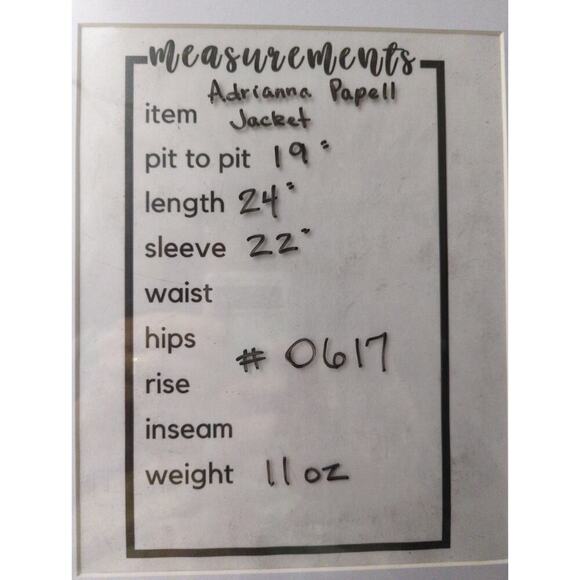 measurements
Adrianna Papell
item Jacket
pit to pit 19"
length 24"
sleeve 22"
waist
hips
# 0617
rise
inseam
weight 11 oz